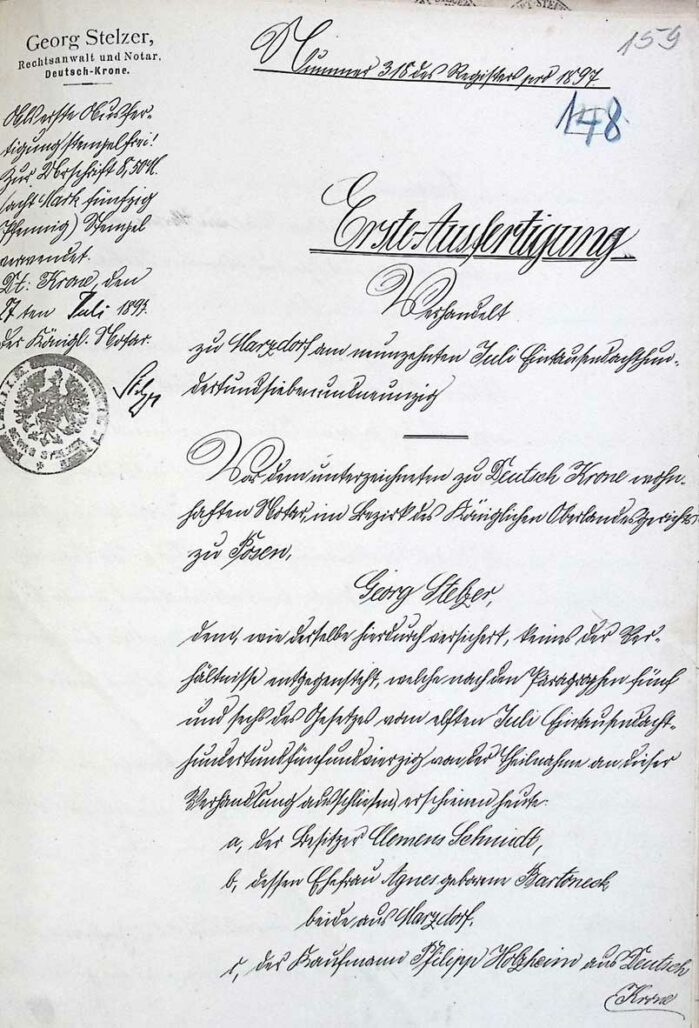 Georg Stelzer,
Rechtsanwalt und Notar.
Deutsch-Krone.
159
Nummer 318 des Registers pro 1897.
148
Als erste Ausfer-
tigung stempelfrei!
Zur Urschrift 8,50 M.
(acht Mark fünfzig
Pfennig) Stempel
verwendet.
Dt. Krone, den
27ten Juli 1897.
Der Königl. Notar.
Stelzer
Erste Ausfertigung.
Verhandelt
zu Marzdorf am neunzehnten Juli Eintausendachthun-
dertundsiebenundneunzig
Vor dem unterzeichneten zu Deutsch Krone wohn-
haften Notar, im Bezirk des Königlichen Oberlandesgerichts
zu Posen,
Georg Stelzer,
dem, wie derselbe hierdurch versichert, keines der Ver-
hältnisse entgegensteht, welche nach den Paragraphen fünf
und sechs des Gesetzes vom elften Juli Eintausendacht-
hundertundfünfundvierzig von der Theilnahme an dieser
Verhandlung ausschließen, erschienen heute:
a, der Besitzer Clemens Schmidt,
b, dessen Ehefrau Agnes geborene Bartoneck
beide aus Marzdorf,
c, der Kaufmann Philipp Holzheim aus Deutsch
Krone